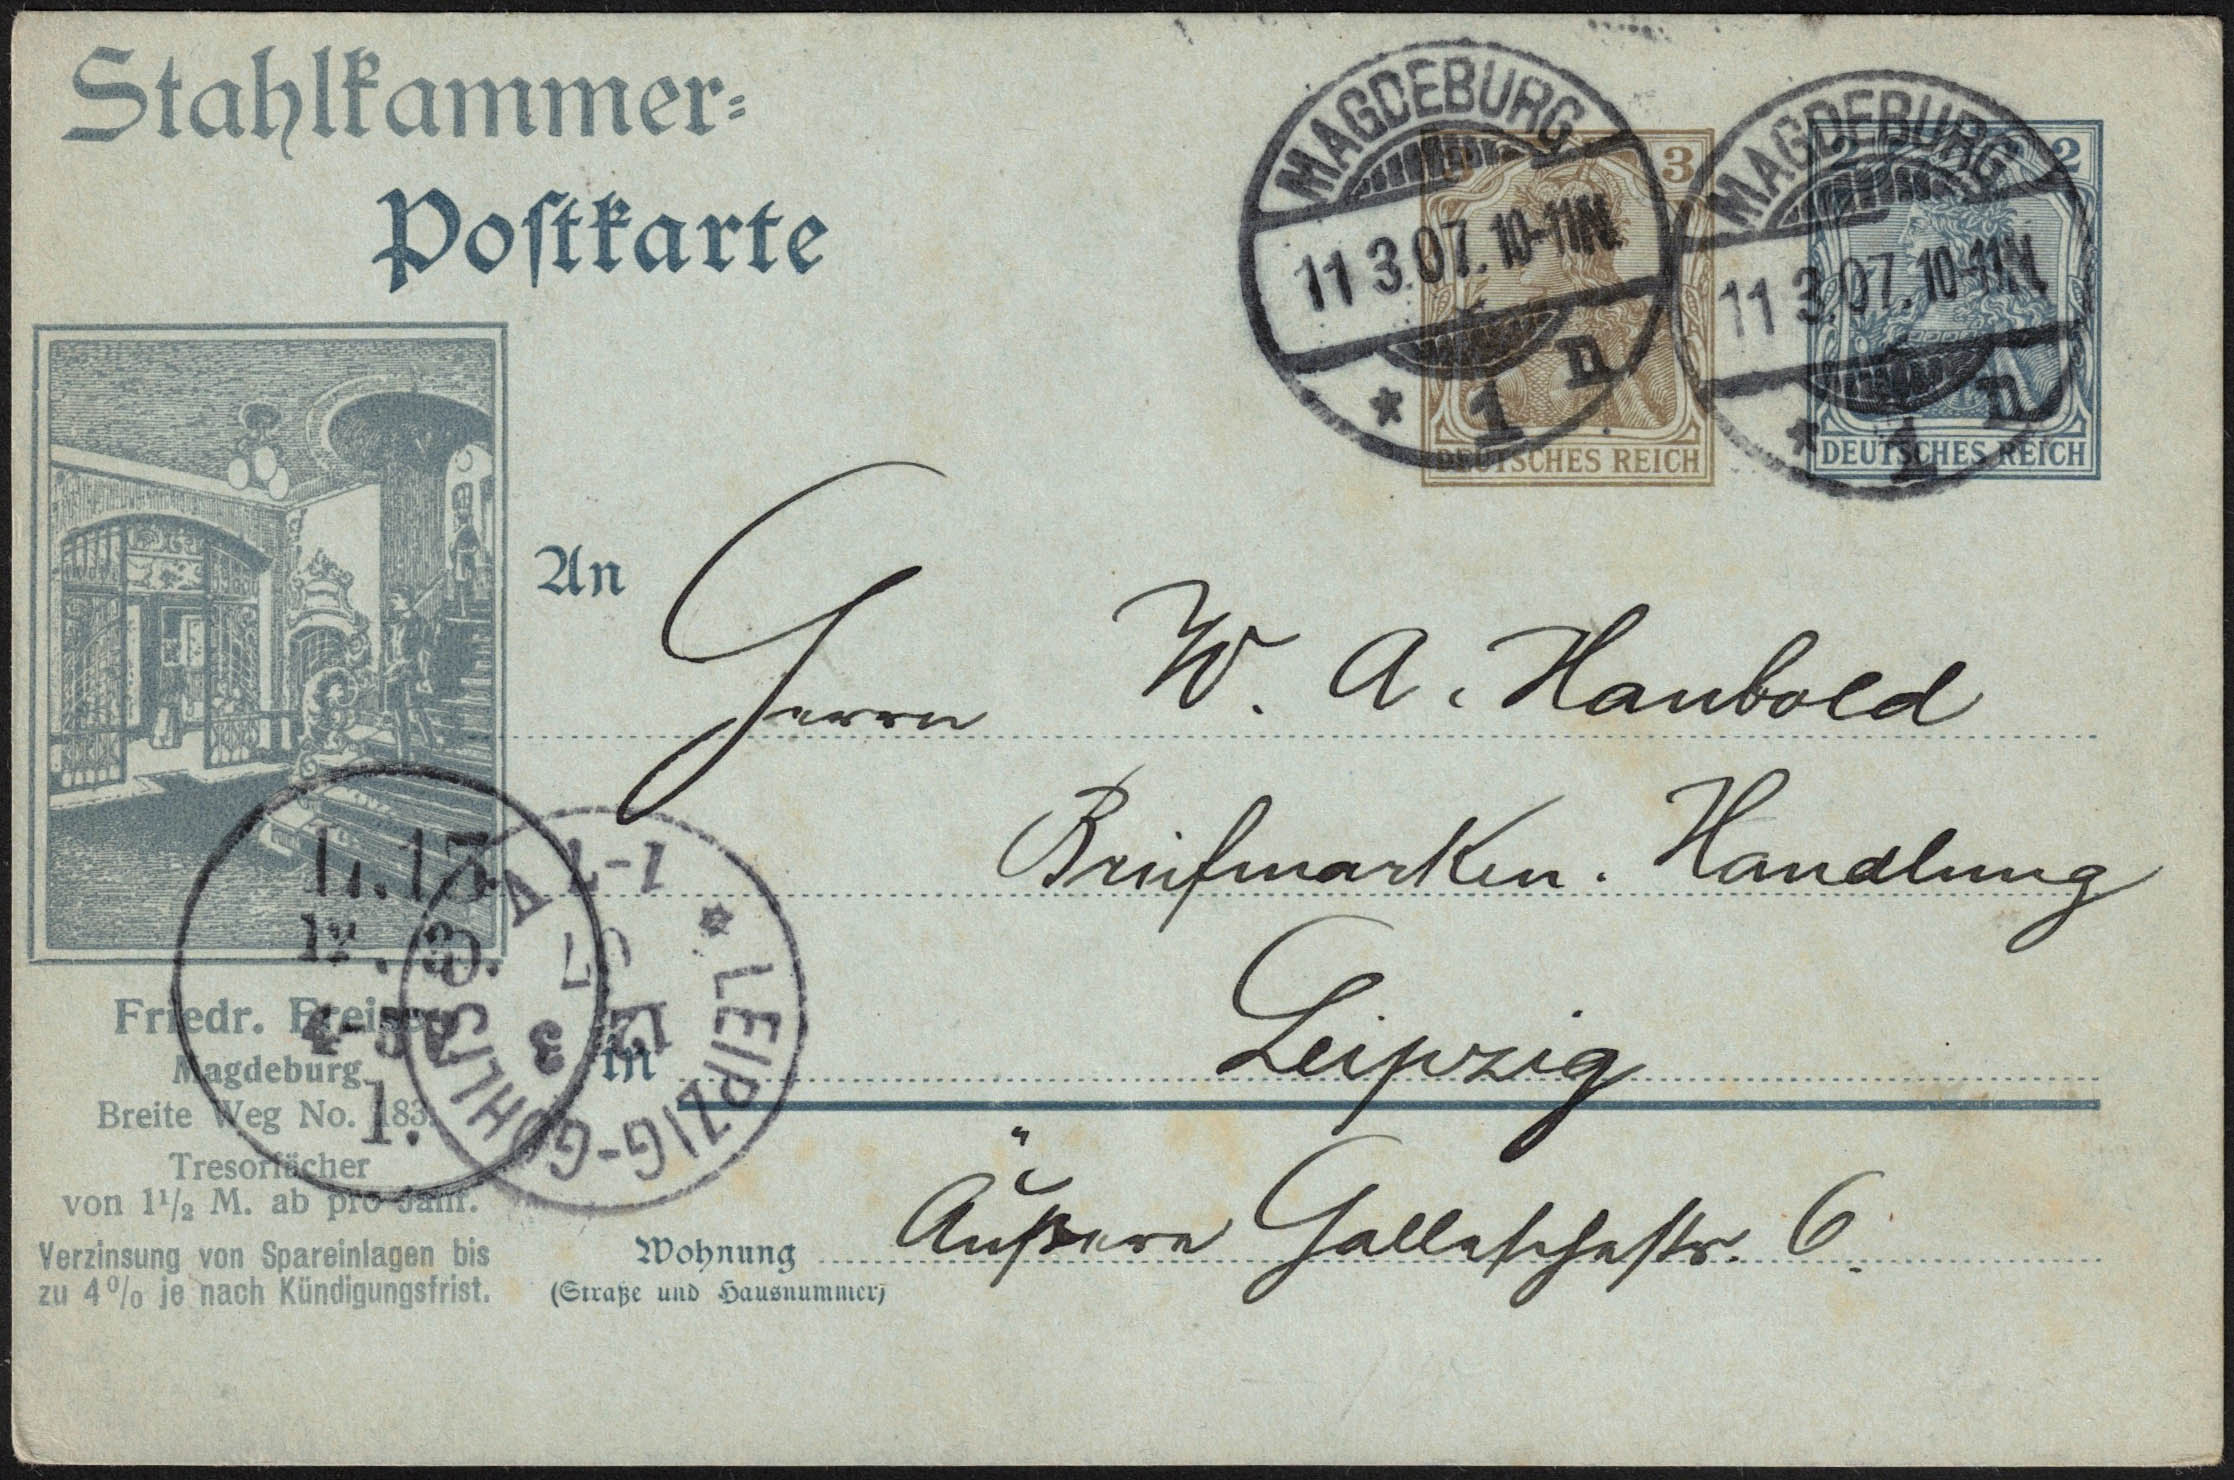 Stahlkammer-
Postkarte
MAGDEBURG
11.3.07.10-11N.
* 1 n
3
DEUTSCHES REICH
MAGDEBURG
11.3.07.10-11N.
* 1 n
2 2
DEUTSCHES REICH
An
Herrn W. A. Haubold
Briefmarken-Handlung
in Leipzig
Wohnung Äußere Halleschestr. 6.
(Straße und Hausnummer)
L.13.
12. 3.
1.
* LEIPZIG-GOHLIS A
12 3
07
Friedr.
Magdeburg
Breite Weg No. 183.
Tresorfächer
von 1½ M. ab pro Jahr.
Verzinsung von Spareinlagen bis
zu 4% je nach Kündigungsfrist.